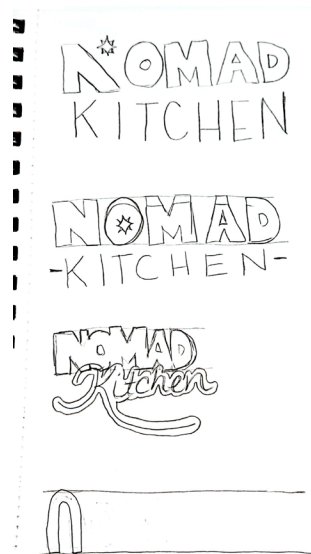 NOMAD
KITCHEN
NOMAD
-KITCHEN-
NOMAD
Kitchen